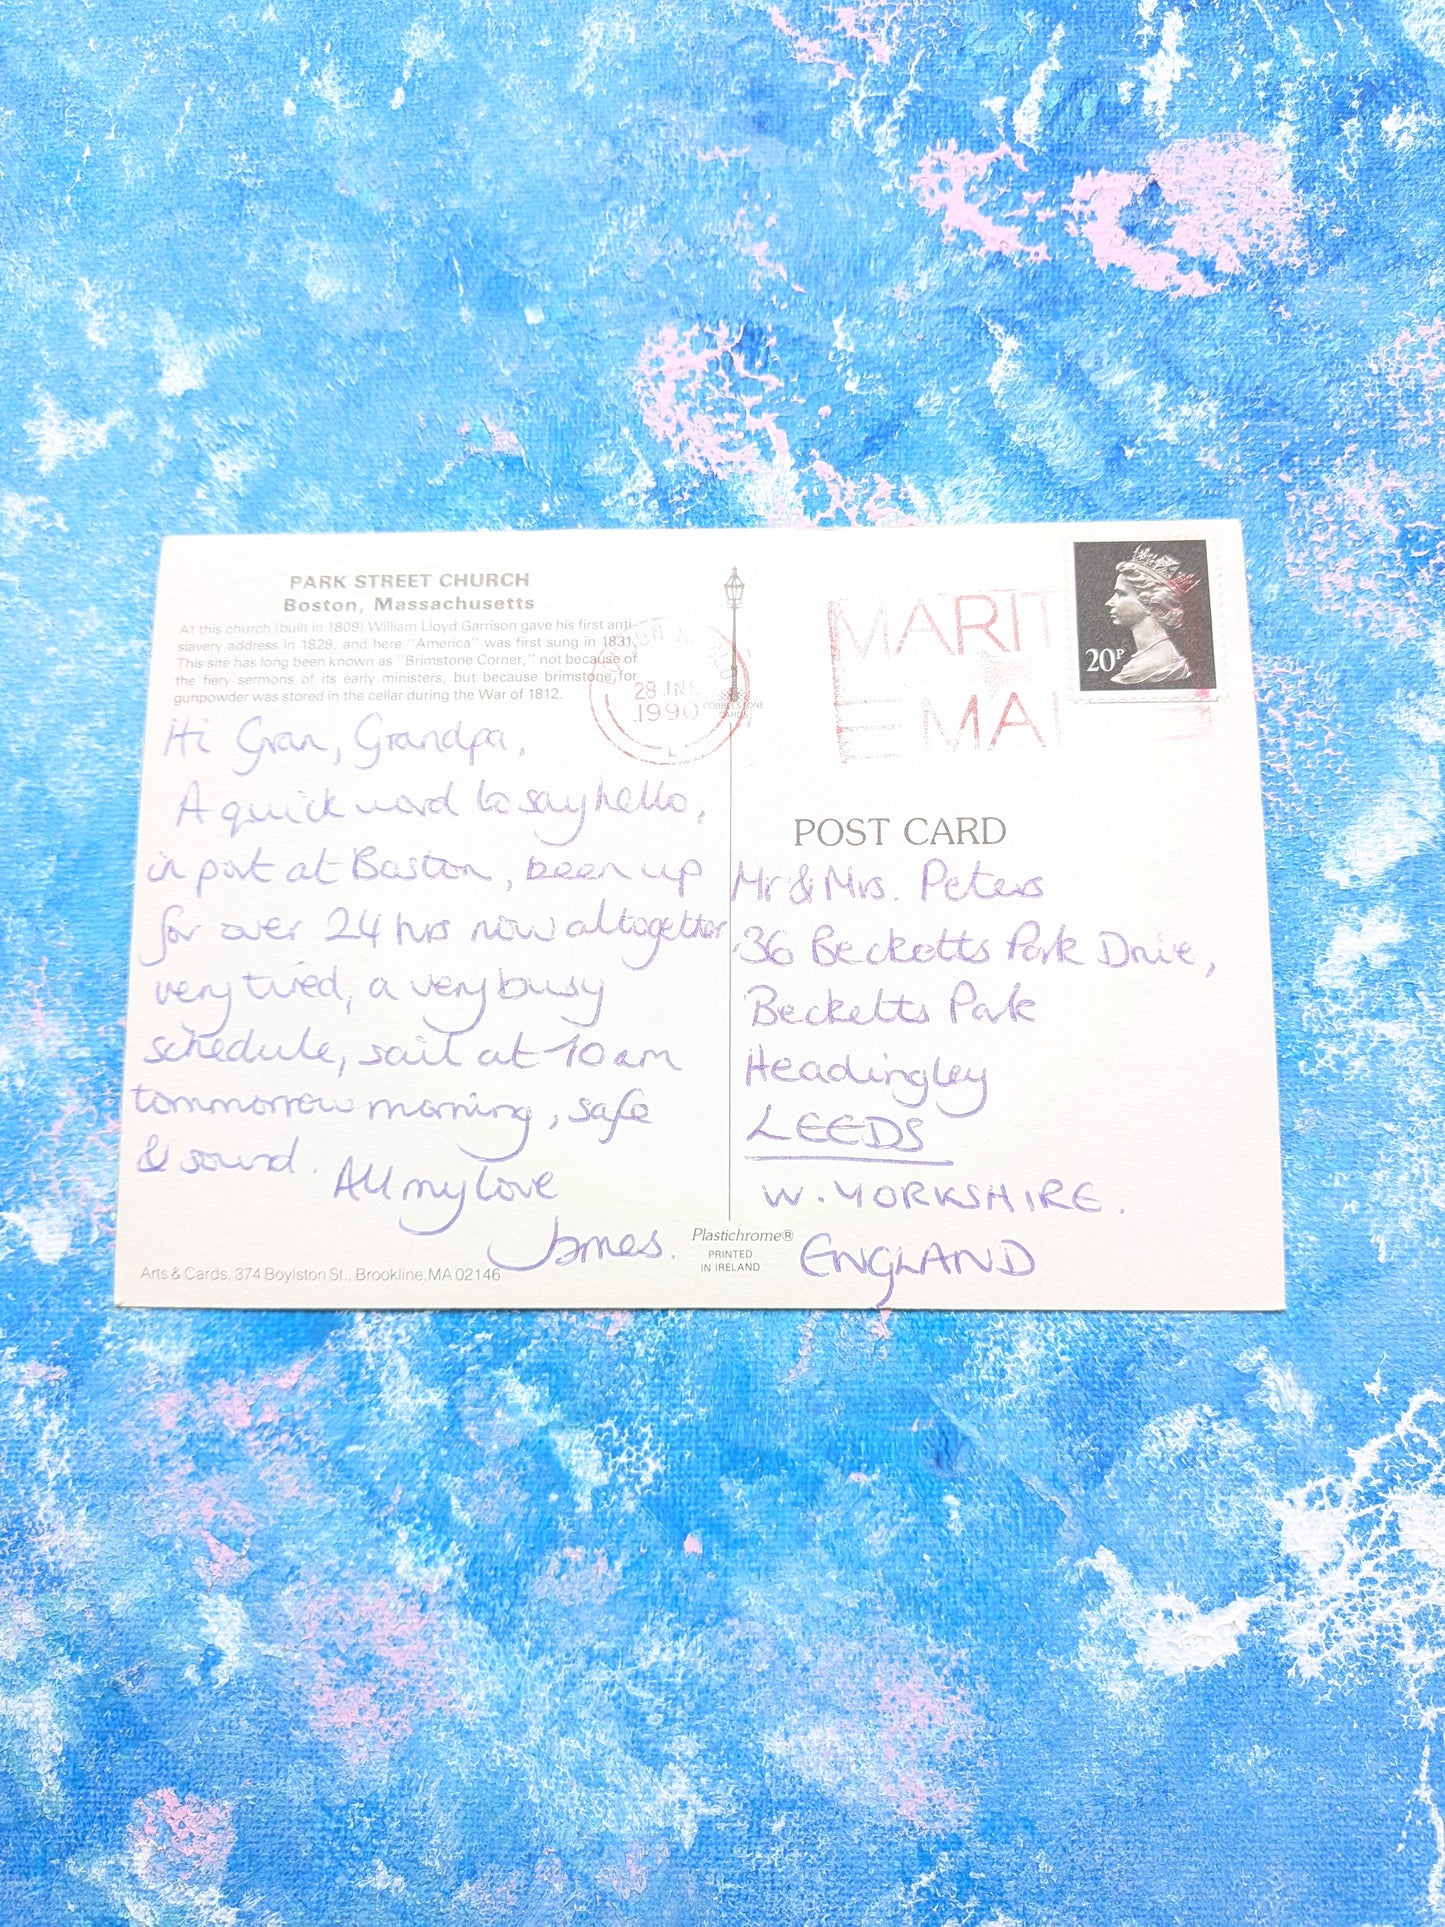 PARK STREET CHURCH
Boston, Massachusetts
At this church (built in 1809) William Lloyd Garrison gave his first anti-
slavery address in 1829, and here "America" was first sung in 1831.
This site has long been known as "Brimstone Corner," not because of
the fiery sermons of its early ministers, but because brimstone for
gunpowder was stored in the cellar during the War of 1812.
Hi Gran, Grandpa,
A quick word to say hello,
in port at Boston, been up
for over 24 hrs now altogether
very tired, a very busy
schedule, sail at 10 am
tommorrow morning, safe
& sound.
All my love
James.
Arts & Cards, 374 Boylston St., Brookline, MA 02146
COBBLESTONE
CARDS
Plastichrome®
PRINTED
IN IRELAND
28 JNE
1990
L
MARIT
MAI
20P
POST CARD
Mr & Mrs. Peters
36 Becketts Park Drive,
Becketts Park
Headingley
LEEDS
W. YORKSHIRE.
ENGLAND